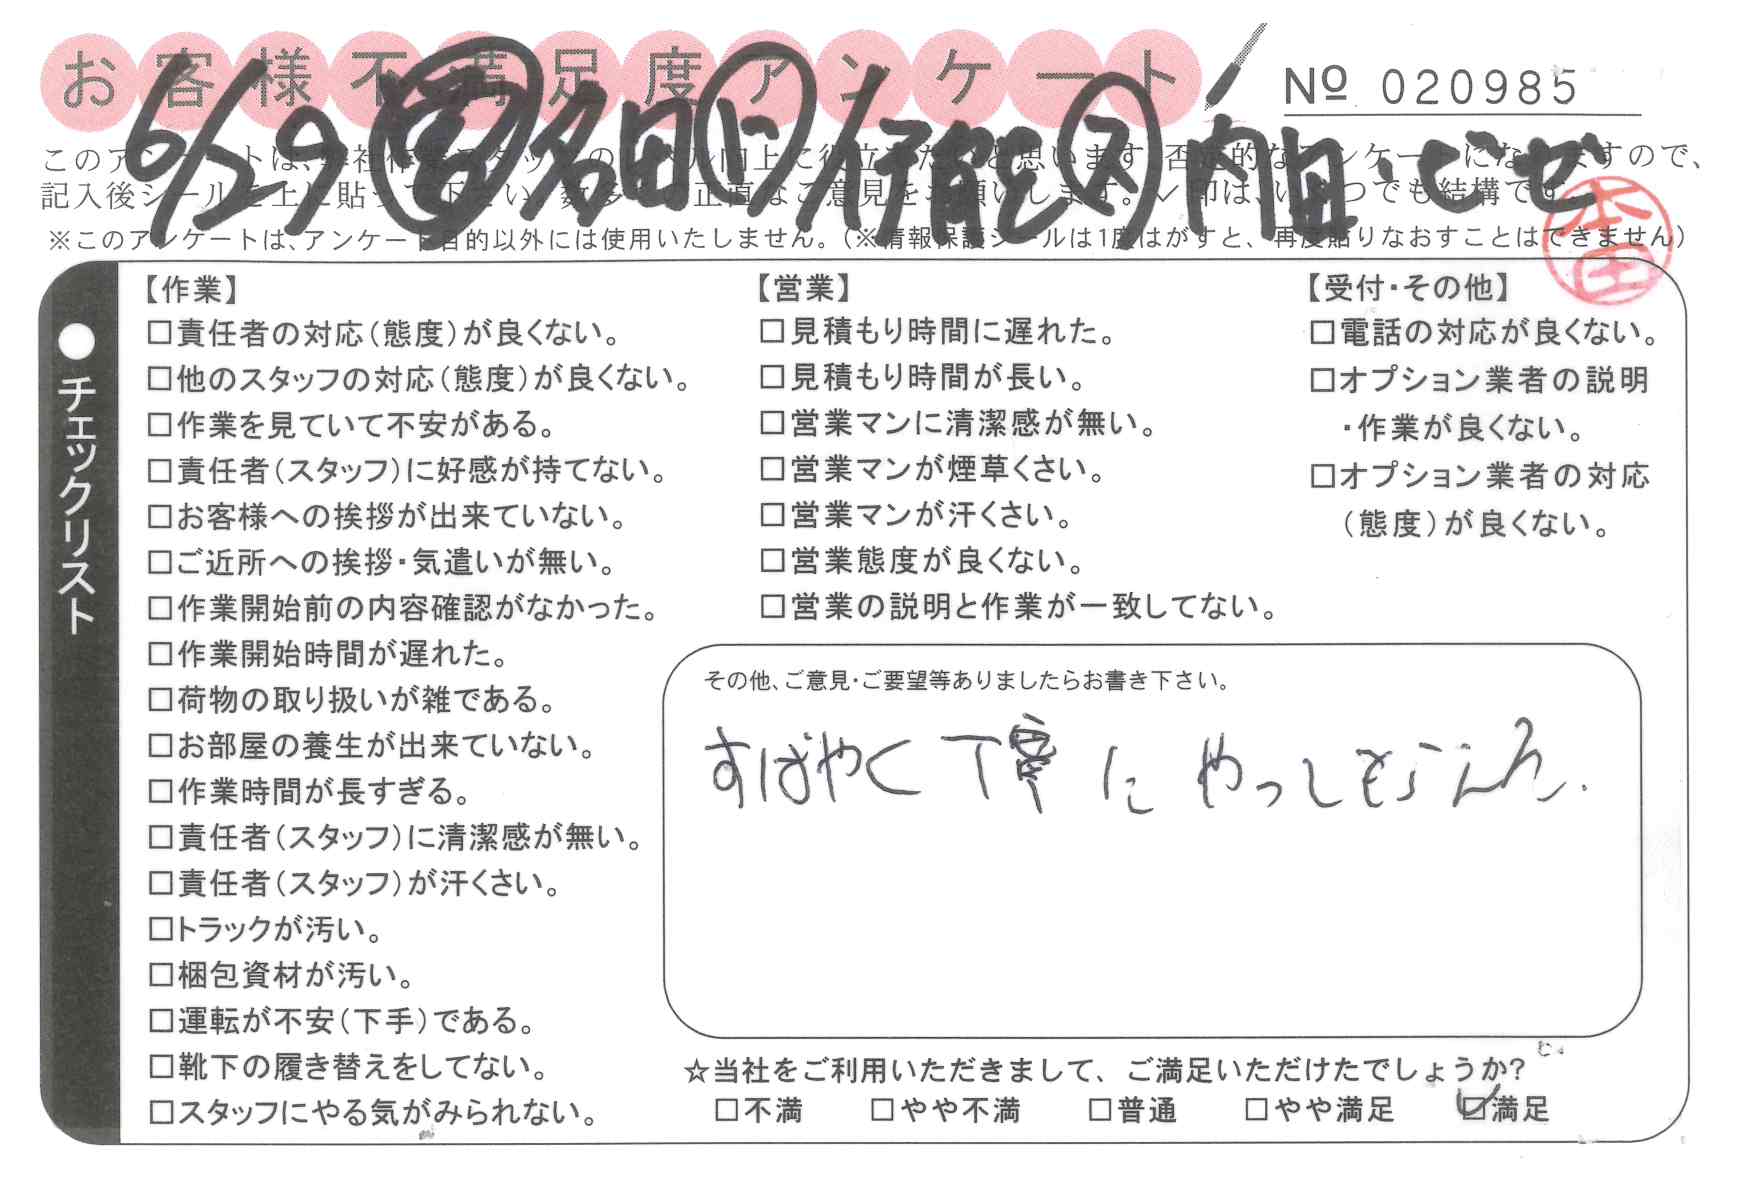 お客様不満足度アンケート
№ 020985
6/29 名田 内田・
このアンケートは、弊社作業スタッフのレベル向上に役立てたいと思います。否定的なアンケートになりますので、
記入後シールを上に貼って下さい。数多くの正直なご意見をお願いします。✓印は、いくつでも結構です。
※このアンケートは、アンケート目的以外には使用いたしません。（※情報保護シールは1度はがすと、再度貼りなおすことはできません）
本田
●チェックリスト
【作業】
□責任者の対応（態度）が良くない。
□他のスタッフの対応（態度）が良くない。
□作業を見ていて不安がある。
□責任者（スタッフ）に好感が持てない。
□お客様への挨拶が出来ていない。
□ご近所への挨拶・気遣いが無い。
□作業開始前の内容確認がなかった。
□作業開始時間が遅れた。
□荷物の取り扱いが雑である。
□お部屋の養生が出来ていない。
□作業時間が長すぎる。
□責任者（スタッフ）に清潔感が無い。
□責任者（スタッフ）が汗くさい。
□トラックが汚い。
□梱包資材が汚い。
□運転が不安（下手）である。
□靴下の履き替えをしてない。
□スタッフにやる気がみられない。
【営業】
□見積もり時間に遅れた。
□見積もり時間が長い。
□営業マンに清潔感が無い。
□営業マンが煙草くさい。
□営業マンが汗くさい。
□営業態度が良くない。
□営業の説明と作業が一致してない。
【受付・その他】
□電話の対応が良くない。
□オプション業者の説明
・作業が良くない。
□オプション業者の対応
（態度）が良くない。
その他、ご意見・ご要望等ありましたらお書き下さい。
すばやく丁寧に やってもらえた.
☆当社をご利用いただきまして、ご満足いただけたでしょうか?
□不満 □やや不満 □普通 □やや満足 ☑満足